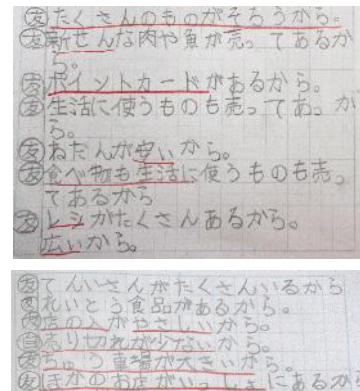 友たくさんのものがそろうから。
友新せんな肉や魚が売ってあるか
ら。
友ポイントカードがあるから。
友生活に使うものも売ってあっか
ら。
友ねだんが安いから。
友食べ物も生活に使うものも売っ
てあるから
友レジがたくさんあるから。
広いから。
友てんいんさんがたくさんいるから
友れいとう食品があるから。
友店の人がやさしいから。
自売り切れが少ないから。
友ちゅう車場が大きいから。
友ほかのお店がいっしょにあるから